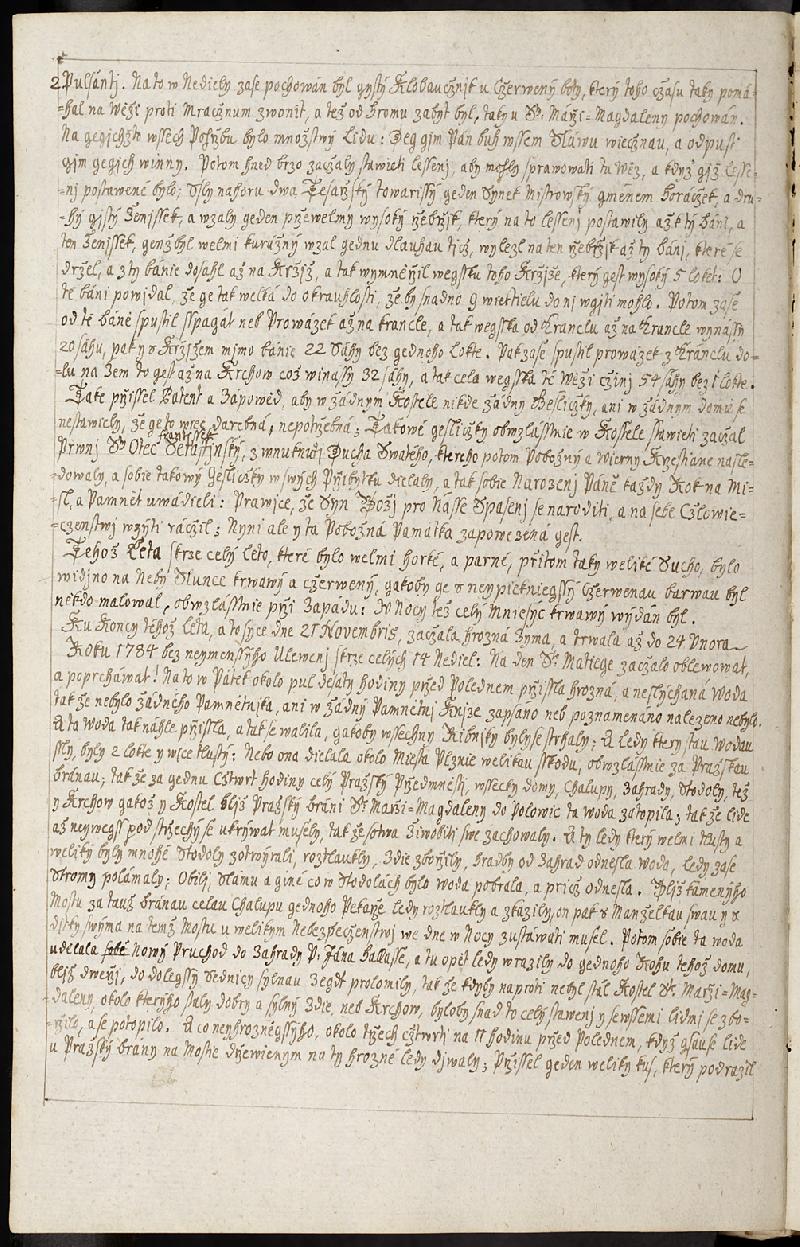 2 Pulsanti. Na to w Nedieli zase pochowán byl gystý Klobaucžnjk u Cžerwený boty, který toho cžasu taky pomá-
-hal na Wěži proti Mracžnum zwonit, a též od hromu zabyt byl, taky u St. Máří-Magdaleny pochowán.
Na gegichžto wssech Pohřbu bylo množstwý Lidu: Deg gjm Pán Buh wssem Sláwu wiecžnau, a odpusť
gjm gegich winny. Potom hned brzo zacžaly stawieti lessenj, aby mohly sprawowati tu Wěž, a když giž lesse-
nj postawené bylo; Ssly nahoru dwa Tesařsstý towarissý geden Synek Mistrowský, gménem Horácžek, a dru-
-hý gjstý Ženjssek, a wzaly geden přzewelmi wysoký řzebřjk, který na to lessenj postawily až k tý báni, a
ten Ženissek, genž byl welmi kurážný wzal gednu dlauhau tycž, wylezl na ten řzebřjk až ty bánj, které se
držel, a z tý bánie dosáhl až na Křjž, a tak wyměřil wegssku toho Křjže, který gest wysoký 5 loket: O
té báni powjdal, že ge tak welká do okrauhlosti, že by snadno 9 wiertielu do nj wgjti mohlo. Potom zase
od té báně spustil sspagát neb Prowázek až na krancle, a tak wegsska od Kranclu až na Krancle wynássý
20 sáhu, pak y s Křjžem mjmo bánie 22 Sáhy bez gednoho lokte. Pak zase spustil prowázek z Kranclu do-
lu na Zem to gest až na Krchow což winássý 32 sáhy, a tak celá wegsska té Wěži cžinj 54 sáhy bez 1 lokte.
Také přissel Patent a Zapowěd, aby w žádným Kostele nikde žádný Gesličzky, ani w žádným domu se
nestawiely, že ge to wiec darebná, nepotřebná; Takowé gesličzky obwzlásstnie w Kostele stawieti zacžal
Prwnj St. Otec Frantissek Seraffynský, z wnuknutj Ducha Swatého, kterého potom Pobožný a Wierný Křestiané násle-
dowaly, a sobie takowý Gesličzky w swých Přjbytku dielaly, a tak sobie Narozenj Páně každý Rok na Mi-
sl, a Pamnět uwádieli: Prawjce, že Syn Božj pro Nasse Spasenj se naroditi, a na sebe Cžlowie-
cženstwj wzýti rácžil; Nyni ale y ta Pobožná Památka zapowezená gest.
Tehož Léta skrze celý léto, které bylo welmi horké, a parné, přitom taky weliké Sucho, bylo
widjno na Neby Slunce krwawý a cžerwený, gakoby ge s neypieknieyssý cžerwenau barwau byl
někdo maloval, obwzlásstnie při Zapadu: W Nocy též celý Mniesýc krwawý wýdán byl.
Ku Koncy téhož léta, a to sýce dne 27 Novembris, zacžala hrozná Zyma, a trwala až do 24 Unora
Roku 1784 bez neymenssýho Ulewenj skrze celých 14 Nediel: Na den St. Matiege zacžalo oblewowat,
a poprcháwat! Na to w Pátek okolo pul desáty hodiny před Polednem přissla hrozná, a neslýchaná Woda
tak že nebylo žádného Pamnětnjka, ani w žádný Pamnětnj Knjze zapsáno neb poznamenáno nalezeno nebylo.
A ta woda tak náhle přissla, a tak se walila, gakoby wssechny Ribnjky byly se strhaly; A ledy který s tau Wodau
ssly, byly 2 lokte y wjce tlustý: Nebo ona dielala okolo Miesta Plznie welikau sskodu, obwzlásstnie za Pražskau
bránau; tak že za gednu Cžtwrt hodiny celý Pražský Předmnestj, wssecky domy, Chalupy, Zahrady, Stodoly, též
y Krchow gakož y Kostel bljž Pražský bránj St. Marži-Magdaleny do polowic ta woda zatopila; tak že lide
až neywegss pod střechý se ukrýwat musely, tak že sotwa žiwobiti swé zachowaly. A ty ledy který welmi tlustý a
weliký byly mnohé Stodoly zotwjrali, roztlaukly, Zdie zbořily, hradby od Zahrad odnesla woda, ledy zase
Stromy polámaly: Obilj, Slámu a giné co w Stodolách bylo woda pobrala, a pricž odnesla. Bljž kamenýho
Mostu za tauž bránau celau Chalupu gednoho Pekaře ledy roztlaukly a zkazily, on pak s Manželkau swau y s
djtky swýma na temž Mostu u welikym Nebezpecženstwj we dne w Nocy zustáwati musel. Potom sobie ta woda
udělala nowý Pruchod do Zahrady P. Jána Ballasse, a tu opět ledy wrazily do gednoho Rohu tehož domu,
blíž dweřj, do doleyssý Sednicy sylnau Zeď prolomily, tak že kdyby naproti nebyl stál Kostel St. Marži-Mag-
daleny, okolo kterýho staly dobrý a sylný Zdie, neb Krchow, byloby snad to celý stawenj y se wssemi lidmi se zbo-
-řilo, a se potopilo. A co neyhrozněyssýho, okolo třech cžtwrti na 11 hodinu před Polednem, když gsau se lidé
u Pražský brány na Mostie dřzewienym na ty hrozné ledy djwaly; Přissel geden weliký kus, který podrazil